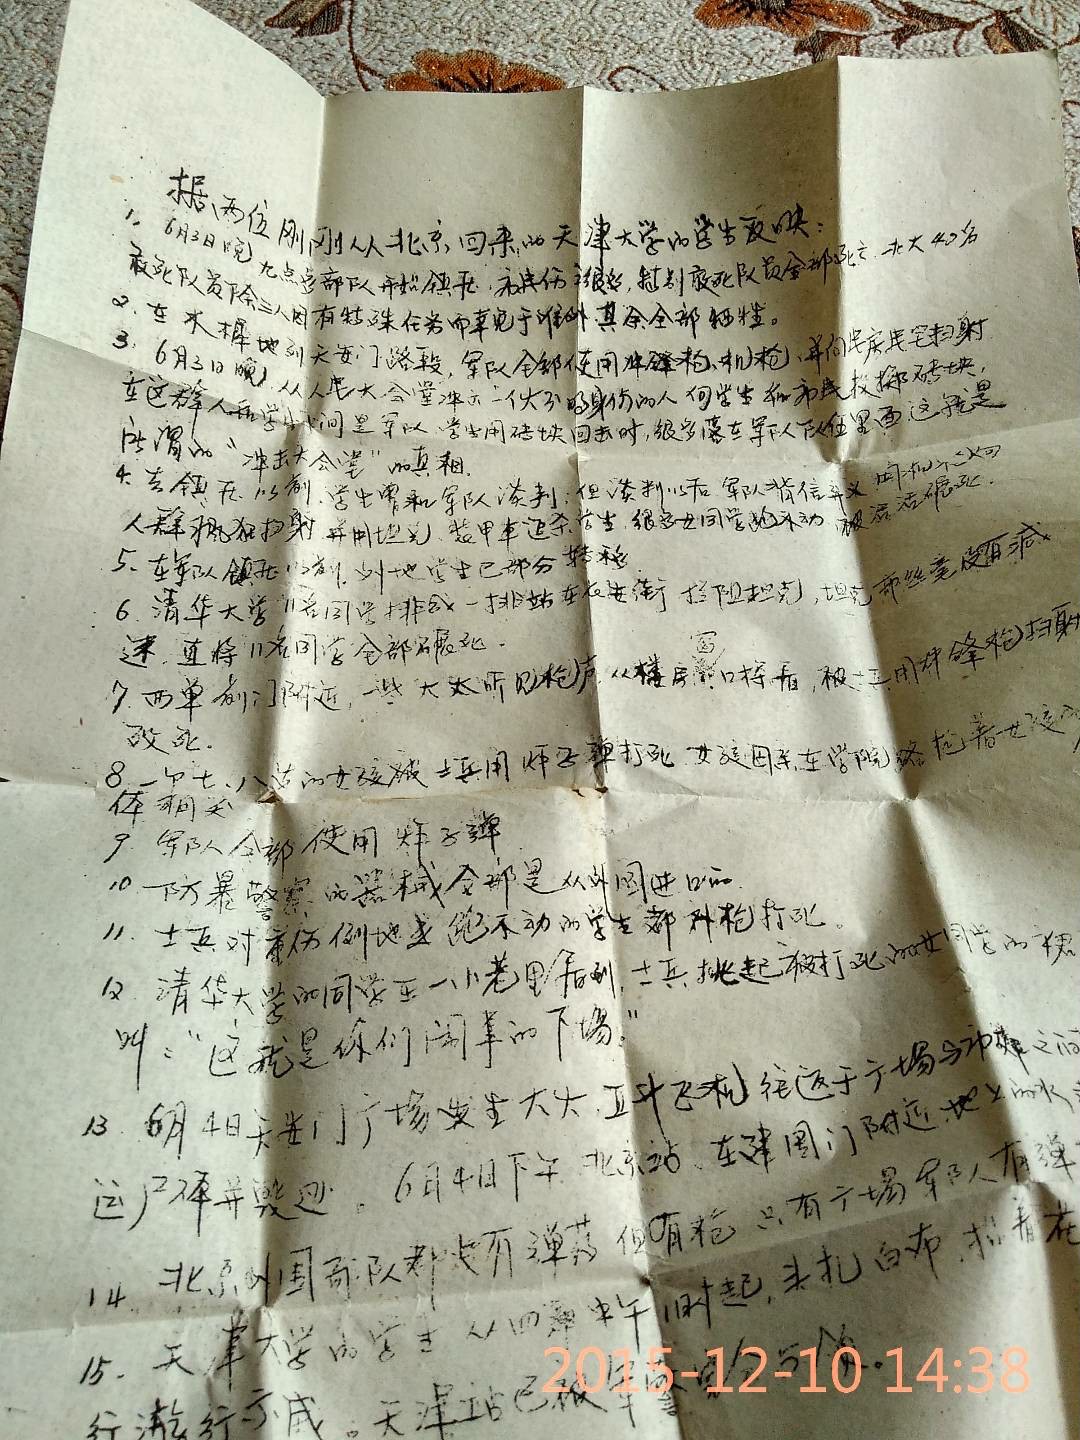 据两位刚刚从北京回来的天津大学的学生反映：
1. 6月3日晚九点当部队开始镇压，市民伤亡很多，特别敢死队员全部死亡，北大40名
敢死队员除三人因有特殊任务而幸免于难外，其余全部牺牲。
2. 在木樨地到天安门路段，军队全部使用冲锋枪、机枪，并向民房民宅扫射
3. 6月3日晚，从人民大会堂冲出一伙不明身份的人向学生和市民投掷砖块，
在这群人和学生中间是军队，学生用砖块回击时，很多落在军队队伍里面这就是
所谓的“冲击大会堂”的真相。
4. 在镇压以前，学生曾和军队谈判；但谈判以后军队背信弃义，
人群疯狂扫射，并用坦克、装甲车追杀学生，很多女同学跑不动被活活碾死。
5. 在军队镇压以前，外地学生已部分转移
6. 清华大学11名同学排成一排站在长安街拦阻坦克，坦克却丝毫没有减
速，直将11名同学全部碾死。
7. 西单前门附近，一些大太听见枪声从楼房窗口探看，被士兵用冲锋枪扫射
致死。
8 一个七、八岁的女孩被士兵用炸子弹打死，女孩母亲在学院路抱着女孩的
体痛哭
9. 军队全部使用炸子弹
10 防暴警察的器械全部是从外国进口的
11. 士兵对重伤倒地或跑不动的学生都补枪打死。
12. 清华大学的同学在一小巷里看到，士兵挑起被打死的女同学的裙
叫：“这就是你们闹革的下场。”
13. 6月4日天安门广场发生大火，直升飞机往返于广场与 之间
运尸体并毁迹。6月4日下午北京站、在建国门附近，地上的
14. 北京外围部队都没有弹药但有枪，只有广场军队有弹
15. 天津大学的学生从四号中午1时起，头扎白布，抬着花
行游行示威。天津站已被
2015-12-10 14:38